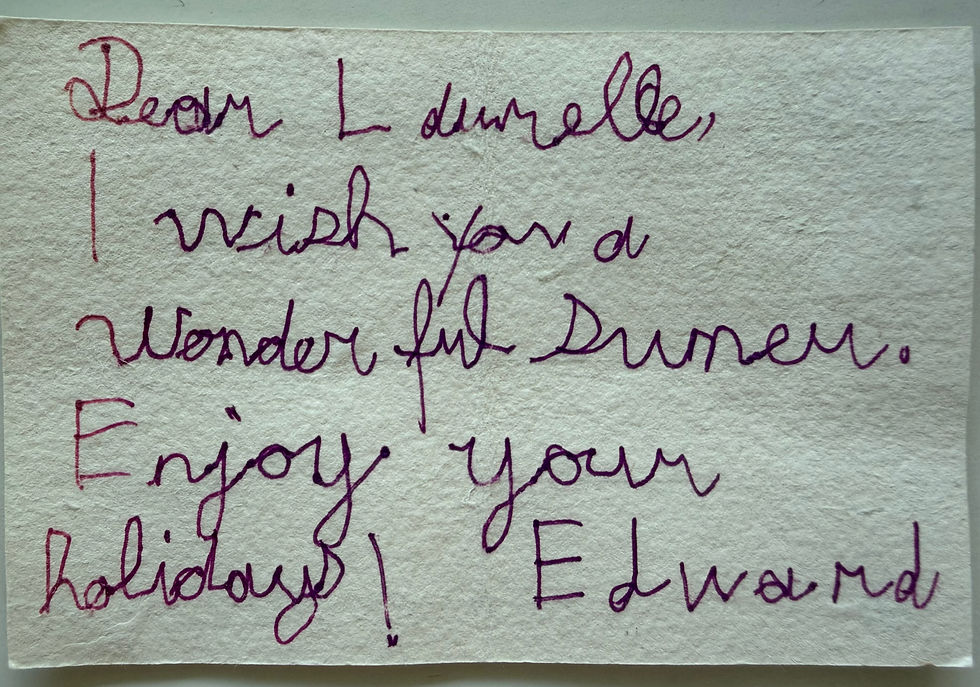 Dear Laurelle,
I wish you a
Wonderful Sumer.
Enjoy your
holidays! Edward